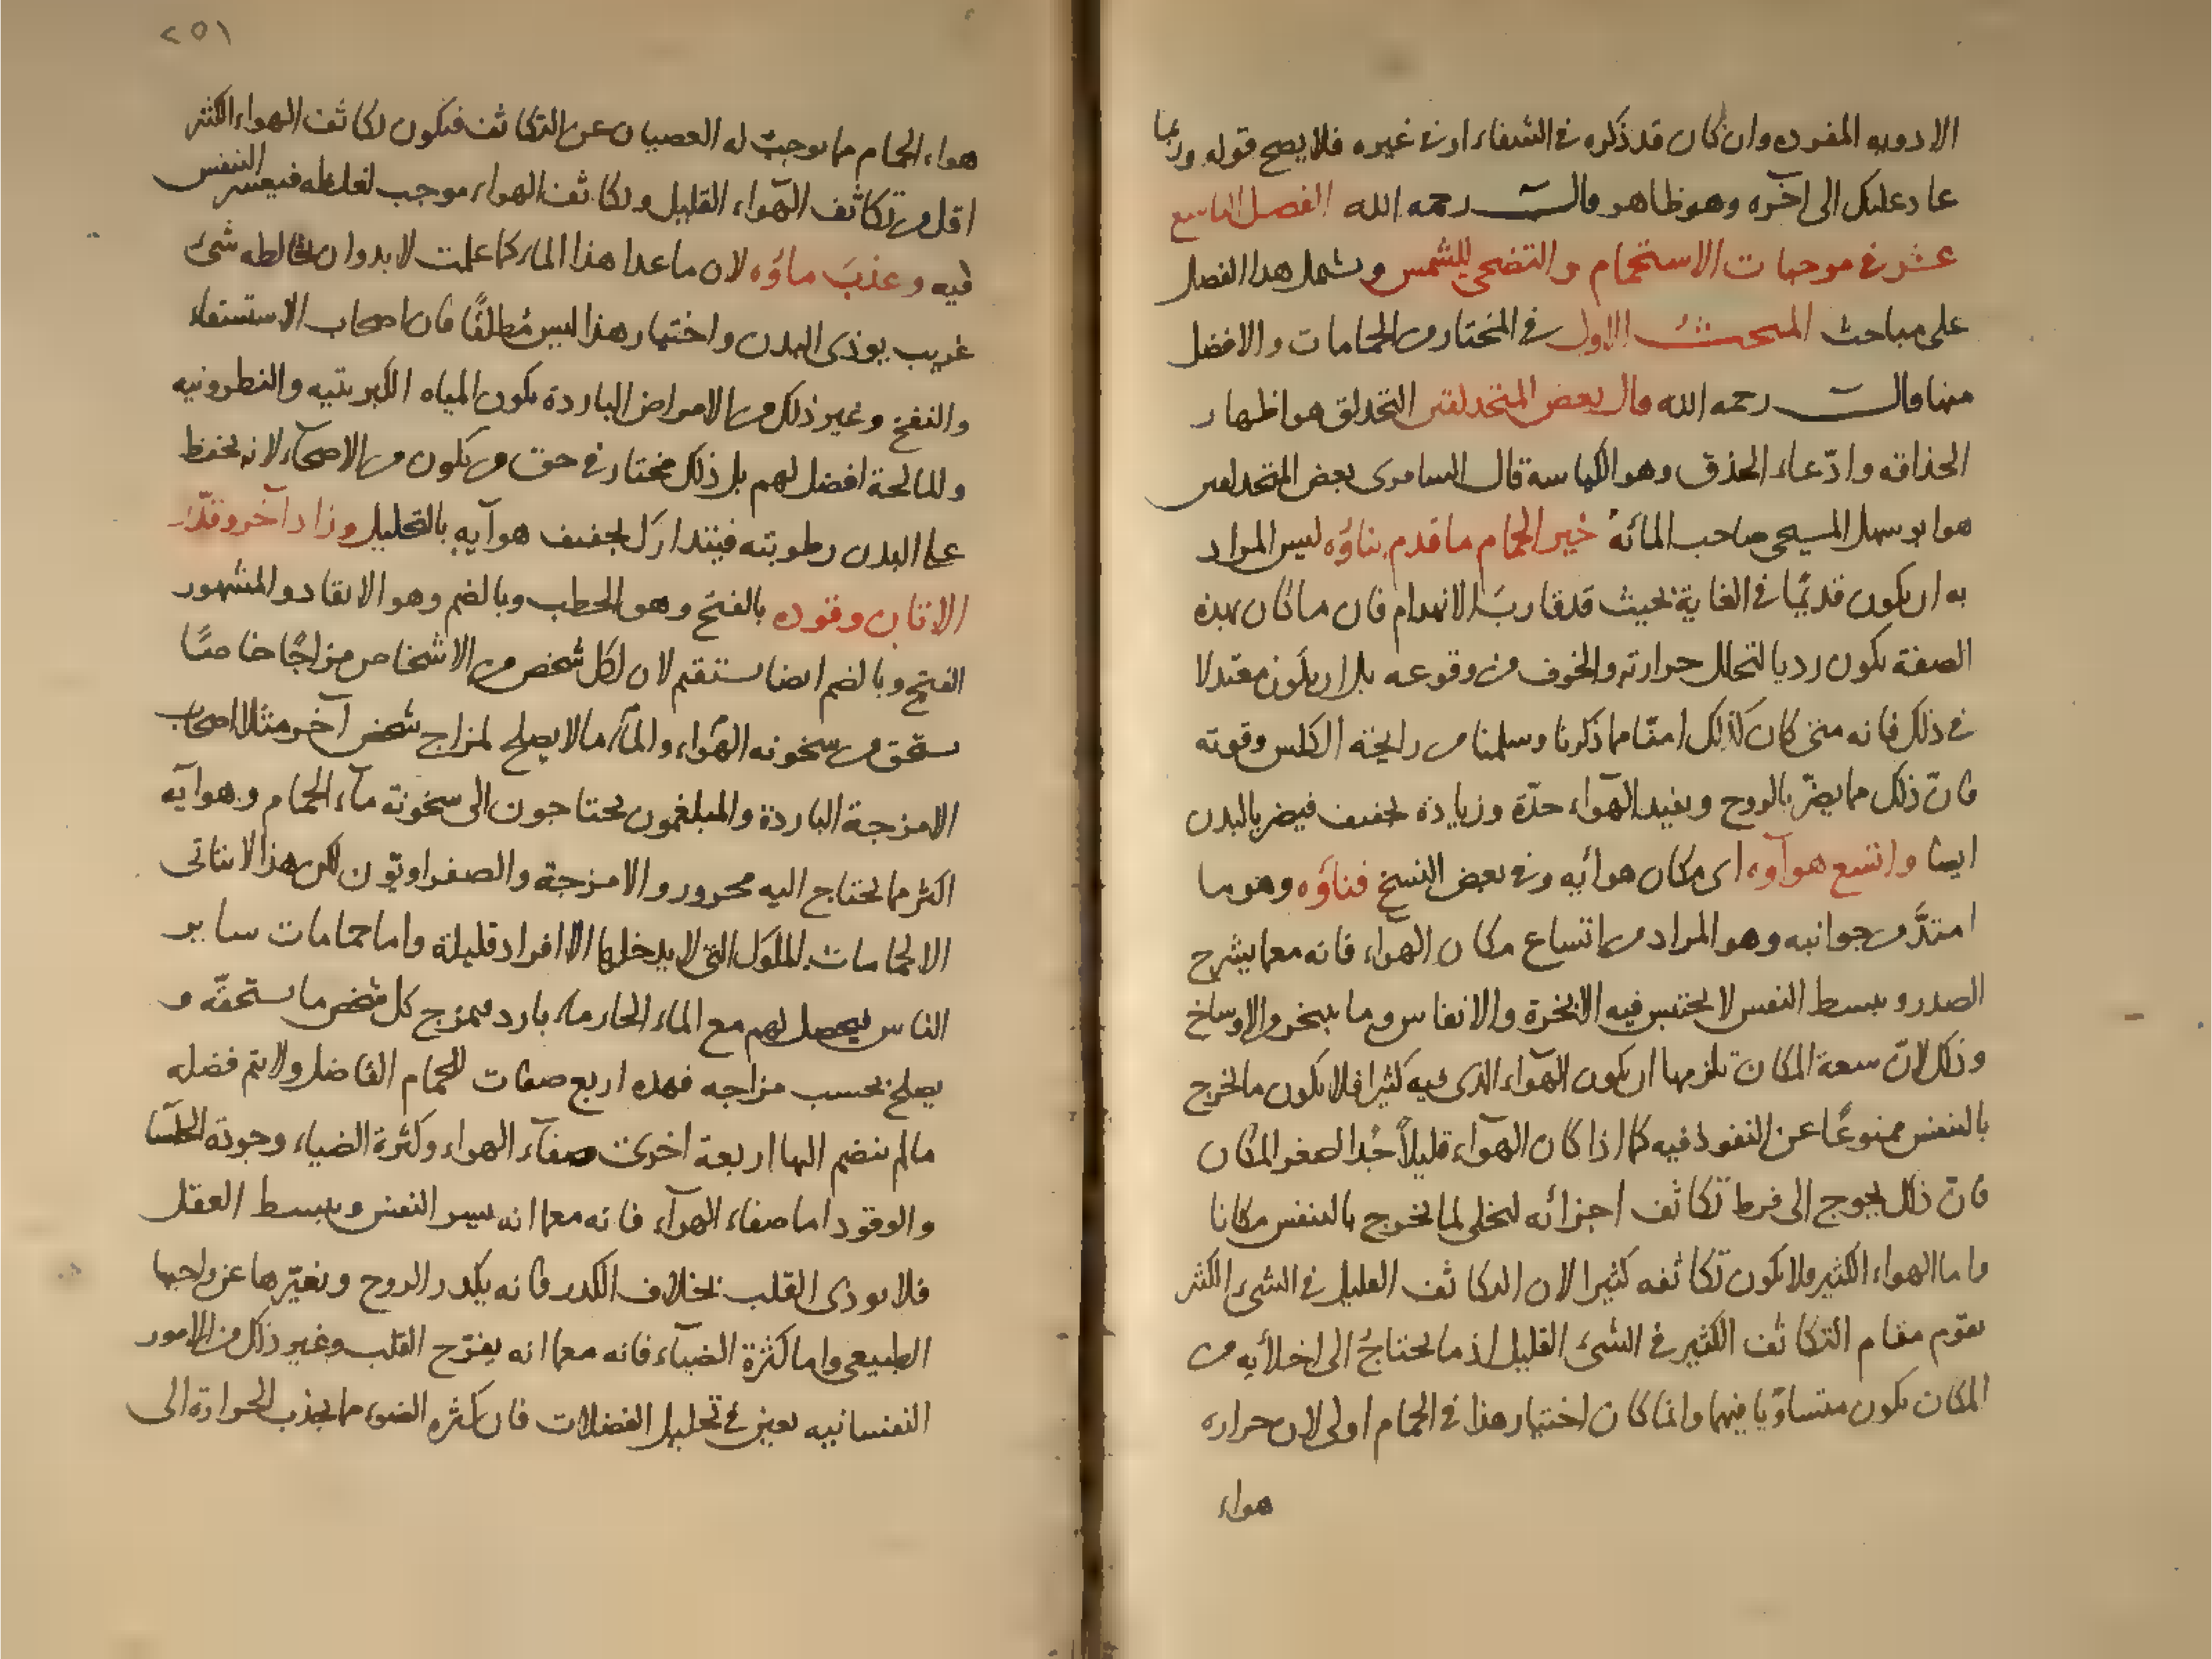 الادويه المفرده وان كان قد ذكره فى الشفاء او فى غيره فلا يصح قوله وربما
عاد عليك الى اخره وهو ظاهر قال رحمه الله الفصل التاسع
عشر فى موجبات الاستحمام والتضحى للشمس ويشمل هذا الفصل
على مباحث المبحث الاول فى المختار من الحمامات والافضل
منها قال رحمه الله قال بعض المتحذلقين التحذلق هو اظهار
الحذاقه وادّعاء الحذق وهو الكياسه قال السامرى بعض المتحذلقين
هو ابو سهل المسيحى صاحب المائة خير الحمام ما قدم بناؤه ليس المراد
به ان يكون قديمًا فى الغاية بحيث قد قارب الانهدام فان ما كان بهذه
الصفة يكون رديا لتحلل حرارته والخوف من وقوعه بل ان يكون معتدلا
فى ذلك فانه متى كان كذلك امنّا مما ذكرنا وسلمنا من رايحة الكلس وقوته
فانّ ذلك مما يضرّ بالروح ويفيد الهوآء حدّة وزيادة تجفيف فيضر بالبدن
ايضا واتسع هوآوه اى مكان هوائه وفى بعض النسخ فناؤه وهو ما
امتدّ من جوانبه وهو المراد من اتساع مكان الهوآء فانه مع ما يشرح
الصدر ويبسط النفس لا يحتبس فيه الابخرة والانفاس وما يتبخر من الاوساخ
وذلك لانّ سعة المكان تلزمها ان يكون الهوآء الذى فيه كثيرا فلا يكون ما يخرج
بالتنفس ممنوعًا عن النفوذ فيه كما اذا كان الهوآء قليلاً جدا لصغر المكان
فانّ ذلك يحوج الى فرط تكاثف اجزائه ليخلى لما يخرج بالتنفس مكانا
واما الهواء الكثير فلا يكون تكاثفه كثيرا لان التكاثف القليل فى الشىء الكثير
يقوم مقام التكاثف الكثير فى الشىء القليل اذ ما يحتاج الى اخلائه من
المكان يكون متساويًا فيهما وانما كان اختيار هذا فى الحمام اولى لان حرارة
هواء
٢٥١
هواء الحمام مما يوجب له العصيان عن التكاثف فيكون تكاثف الهواء الكثير
اقل من تكاثف الهوآء القليل وتكاثف الهواء موجب لغلظه فيعسر التنفس
فيه وعذبَ ماؤه لان ما عدا هذا الماء كما علمت لا بد وان يخالطه شىء
غريب يوذى البدن واختيار هذا ليس مُطلقًا فان اصحاب الاستسقاء
والنفخ وغير ذلك من الامراض الباردة يكون المياه الكبريتيه والنطرونيه
والمالحة افضل لهم بل ذلك مختار فى حق من يكون من الاصحآء لانه يحفظ
على البدن رطوبته فيتدارك تجفيف هوآيه بالتحليل وزاد آخر وقدّر
الاتان وقوده بالفتح وهو الحطب وبالضم وهو الاتقاد والمشهور
الفتح وبالضم ايضا يستقيم لان لكل شخص من الاشخاص مزاجًا خاصًا
يستحق من سخونه الهوآء والمآء ما لا يصلح لمزاج شخص آخر مثلا اصحاب
الامزجة الباردة والمبلغمون يحتاجون الى سخونة مآء الحمام وهوآيه
اكثر مما يحتاج اليه محرورو الامزجة والصفراويّون لكن هذا لا يتاتى
الا لحمامات الملوك التى لا يدخلها الا افراد قليلة واما حمامات ساير
الناس فيحصل لهم مع الماء الحار ماء بارد فيمزج كل شخص ما يستحقّه و
يصلح بحسب مزاجه فهذه اربع صفات للحمام الفاضل ولا يتم فضله
ما لم ينضم اليها اربعة اخرى صفآء الهواء وكثرة الضياء وجودة
والوقود اما صفاء الهوآء فانه مع ما انه يسر النفس ويبسط العقل
فلا يوذى القلب بخلاف الكدر فانه يكدر الروح ويغيّرها عن واجبها
الطبيعى واما كثرة الضيآء فانه مع ما انه يفرّح القلب وغير ذلك من الامور
النفسانيه يعين فى تحليل الفضلات فان كثره الضوء مما يجذب الحرارة الى